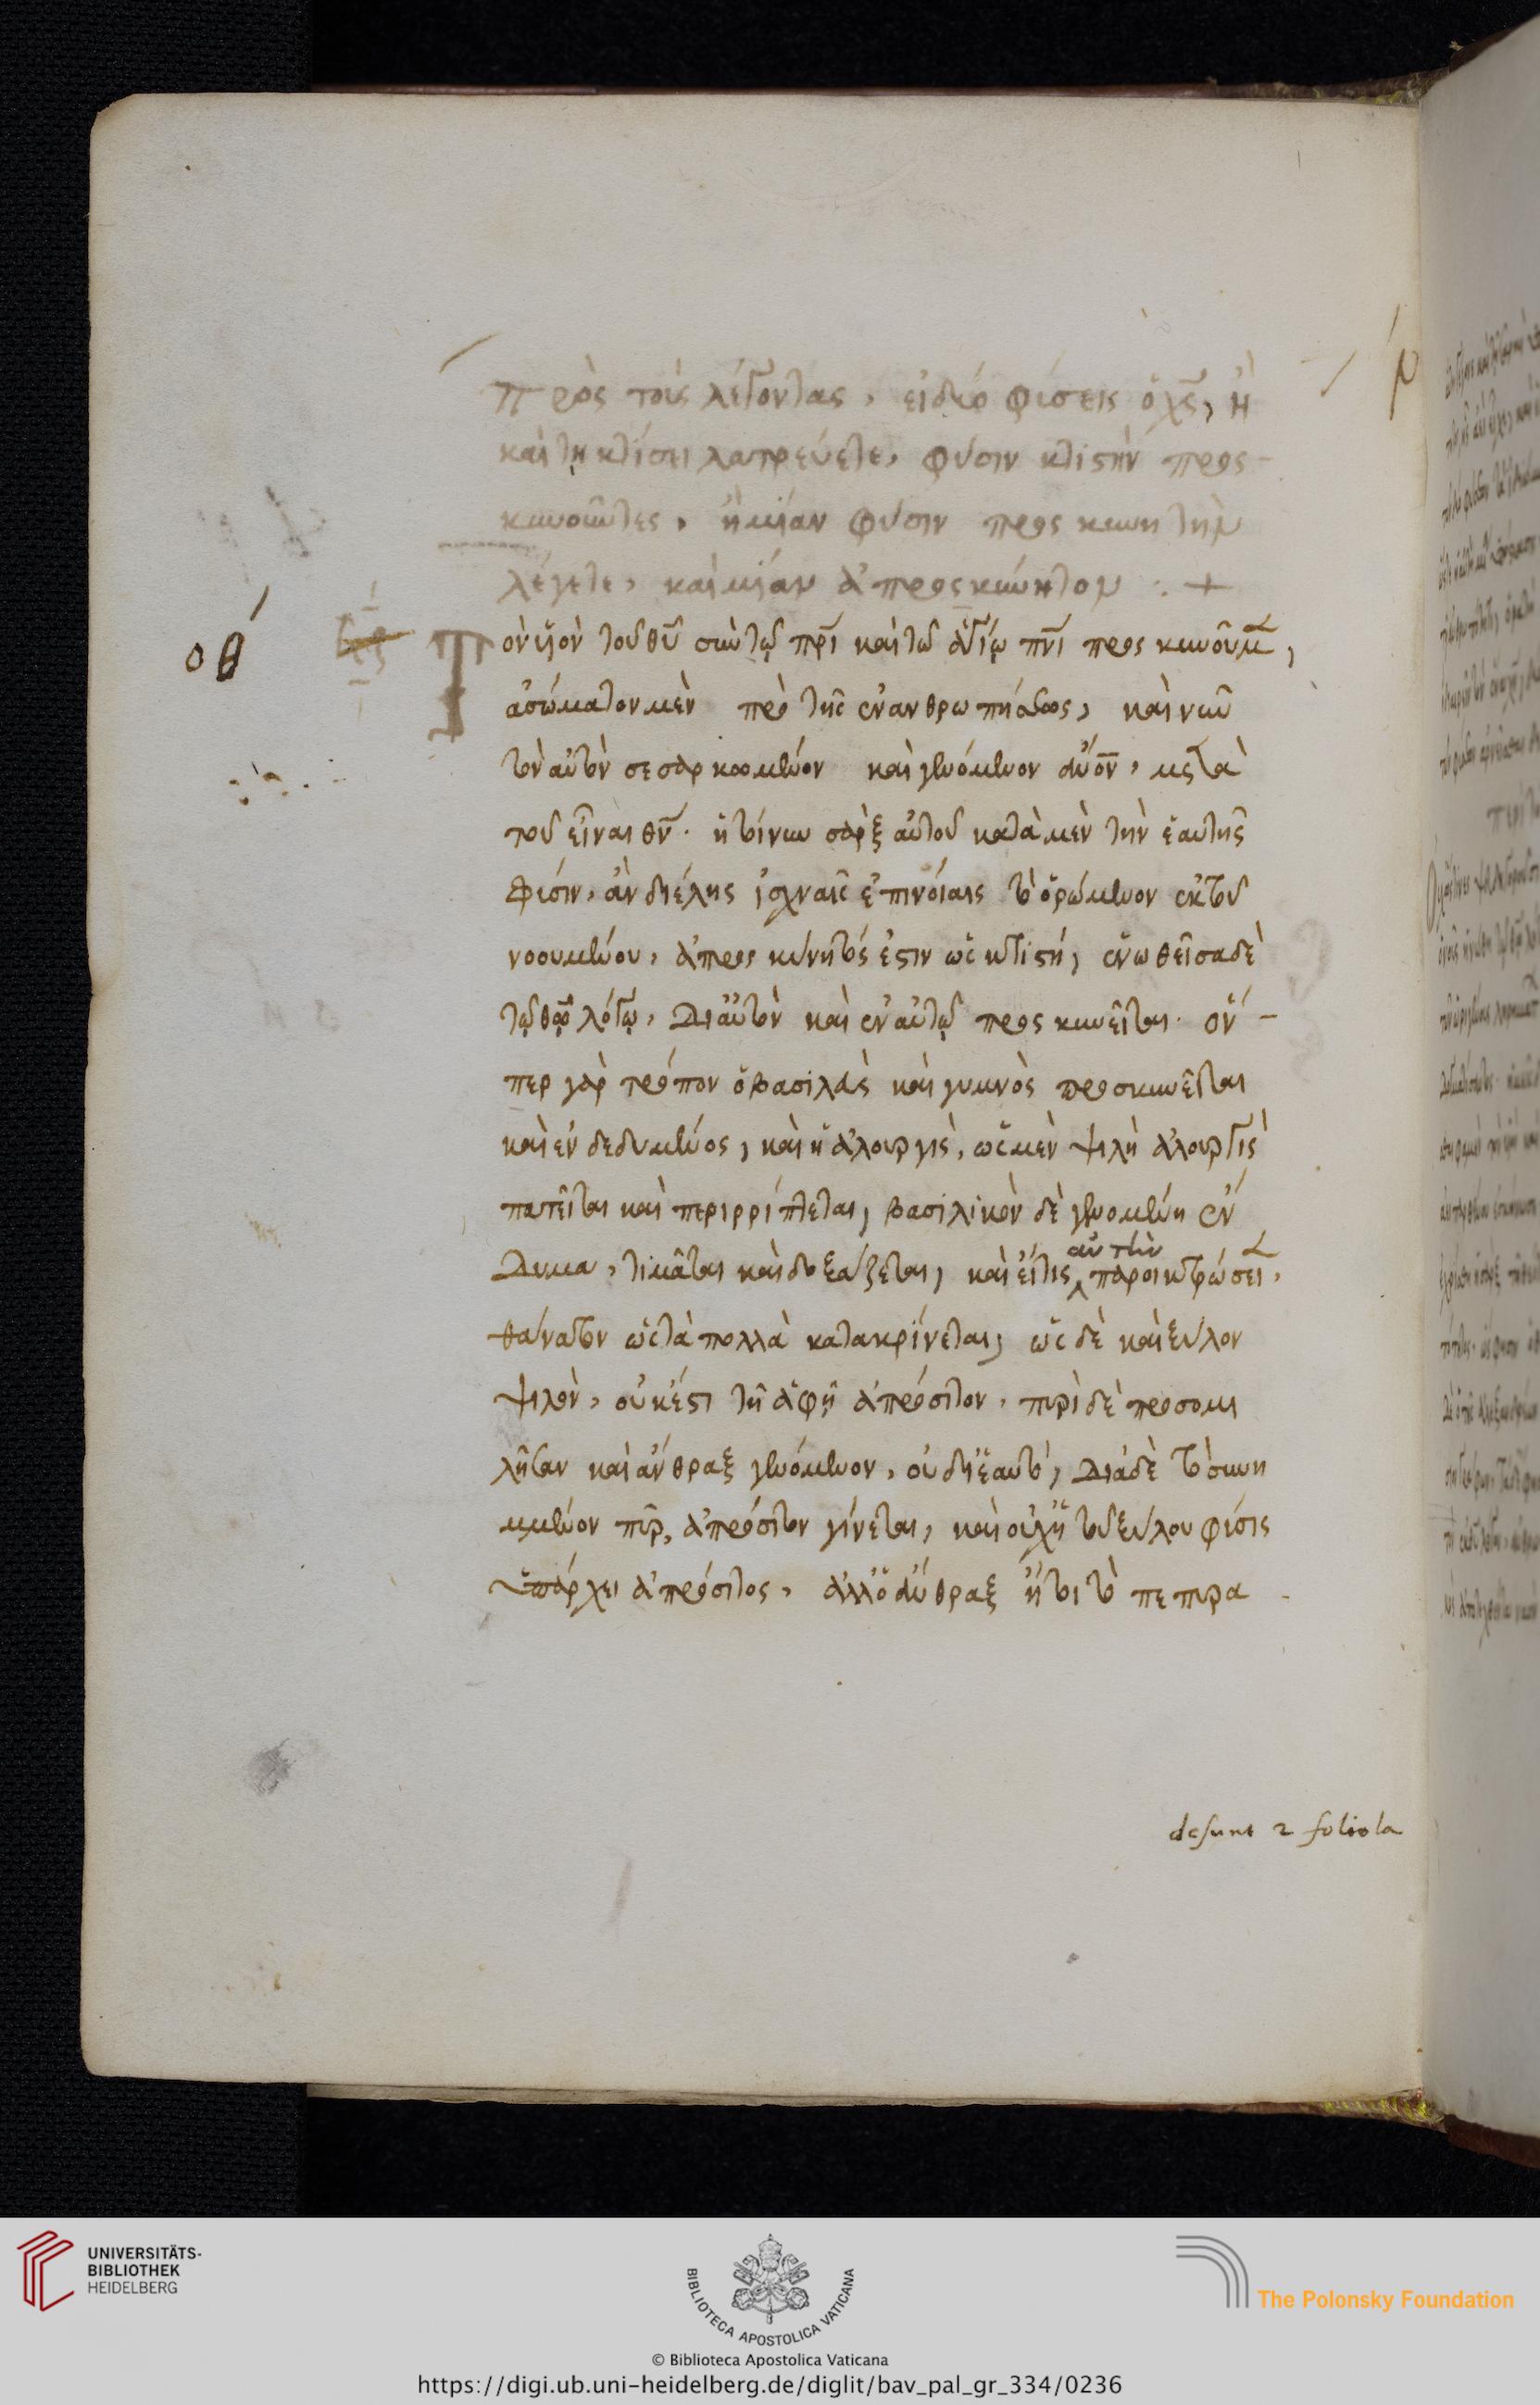 πρὸς τοὺς λέγοντας, εἰ δύο φύσεις ὁ χς, ἢ
καὶ τῇ κτίσει λατρεύετε, φύσιν κτιστὴν προς-
κυνοῦντες, ἢ μίαν φύσιν προσκυνητὴν
λέγετε, καὶ μίαν ἀπροσκύνητον : +
οθ
Τὸν υἱὸν τοῦ θυ σὺν τῷ πρι καὶ τῶ ἁγίῳ πνι προσκυνοῦμ,
ἀσώματον μὲν πρὸ τῆς ἐνανθρωπήσεως, καὶ νῦν
τὸν αὐτὸν σεσαρκωμένον καὶ γενόμενον ἄνον, μετὰ
τοῦ εἶναι θν. ἡ τοίνυν σὰρξ αὐτοῦ κατὰ μὲν τὴν ἑαυτῆς
φύσιν, ἂν διέλης ἰσχναῖς ἐπινοίαις τὸ ὁρώμενον ἐκ τοῦ
νοουμένου, ἀπροσκύνητός ἐστιν ὡς κτιστή, ἑνωθεῖσα δὲ
τῷ θῶ λόγῳ, δι' αὐτὸν καὶ ἐν αὐτῷ προσκυνεῖται. ὅν-
περ γὰρ τρόπον ὁ βασιλεὺς καὶ γυμνὸς προσκυνεῖται
καὶ ἐνδεδυμένος, καὶ ἡ ἁλουργὶς, ὡς μὲν ψιλὴ ἁλουργὶς
πατεῖται καὶ περιρρίπτεται, βασιλικὸν δὲ γενομένη ἔν
δυμα, τιμᾶται καὶ δοξάζεται, καὶ εἴ τις αὐτὴν παροικτρώσει,
θάνατον ὡς τὰ πολλὰ κατακρίνεται, ὡς δὲ καὶ ξύλον
ψιλὸν, οὐκ ἔστι τῇ ἁφῇ ἀπρόσιτον, πυρὶ δὲ προσομι
λῆσαν καὶ ἄνθραξ γενόμενον, οὐ δι' ἑαυτό, διὰ δὲ τὸ συνη
μμένον πῦρ, ἀπρόσιτον γίνεται, καὶ οὐχ ἡ τοῦ ξύλου φύσις
ὑπάρχει ἀπρόσιτος, ἀλλ' ὁ ἄνθραξ ἤτοι τὸ πεπυρα-
desunt 2 foliola
UNIVERSITÄTS-
BIBLIOTHEK
HEIDELBERG
BIBLIOTECA APOSTOLICA VATICANA
The Polonsky Foundation
© Biblioteca Apostolica Vaticana
https://digi.ub.uni-heidelberg.de/diglit/bav_pal_gr_334/0236